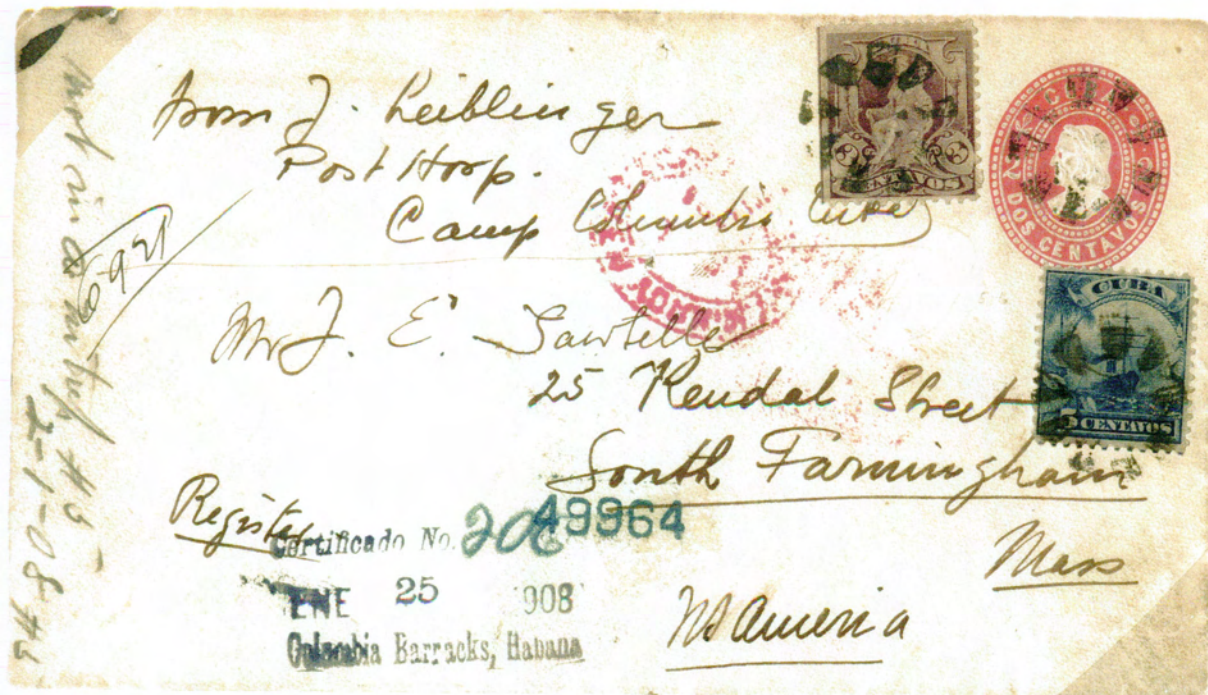 from J. Leiblinger
Post Hosp.
Camp Columbia Cuba
CUBA
3 CENTAVOS 3
CUBA
2 2
DOS CENTAVOS
CUBA
5 CENTAVOS
Mr J. E. Sawtelle
25 Kendal Street
South Farmingham
Mass
US America
Register
Certificado No. 206
49964
ENE 25 1908
Columbia Barracks, Habana
not in
2-1-08